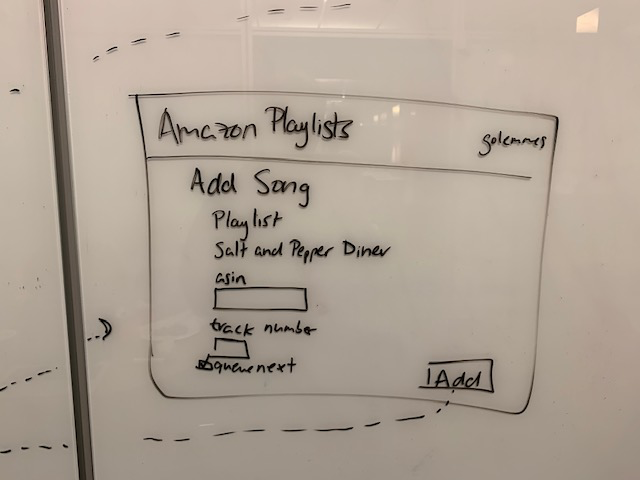 Amazon Playlists
golemmes
Add Song
Playlist
Salt and Pepper Diner
asin
track number
queue next
Add